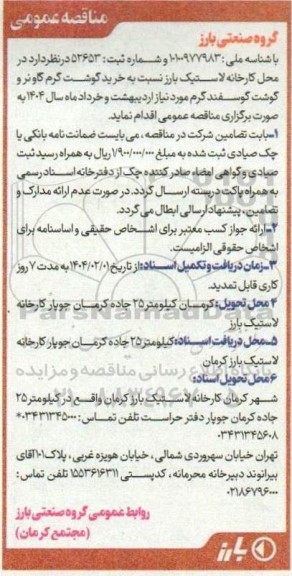 مناقصه عمومی
گروه صنعتی بارز
با شناسه ملی: ۱۰۱۰۰۹۷۷۹۸۳ و شماره ثبت: ۵۲۶۵۳ در نظر دارد در
محل کارخانه لاستیک بارز نسبت به خرید گوشت گرم گاو نر و
گوشت گوسفند گرم مورد نیاز اردیبهشت و خرداد ماه سال ۱۴۰۴ به
صورت برگزاری مناقصه عمومی اقدام نماید.
۱-بابت تضامین شرکت در مناقصه، می بایست ضمانت نامه بانکی یا
چک صیادی ثبت شده به مبلغ ۱/۹۰۰/۰۰۰/۰۰۰ ریال به همراه رسید ثبت
صیادی و گواهی امضاء صادر کننده چک از دفترخانه اسناد رسمی
به همراه پاکت دربسته ارسال گردد. در صورت عدم ارائه مدارک و
تضامین، پیشنهاد ارسالی ابطال می گردد.
۲-ارائه جواز کسب معتبر برای اشخاص حقیقی و اساسنامه برای
اشخاص حقوقی الزامیست.
۳-زمان دریافت و تکمیل اسناد: از تاریخ ۱۴۰۴/۰۲/۰۱ به مدت ۷ روز
کاری قابل تمدید.
۴-محل تحویل: کرمسان کیلومتر ۲۵ جاده کرمسان جوپار کارخانه
لاستیک بارز
۵-محل دریافت اسناد: کیلومتر ۲۵ جاده کرمان جوپار کارخانه
لاستیک بارز کرمان
۶-محل تحویل اسناد:
شهر کرمان کارخانه لاستیک بارز کرمان واقع در کیلومتر ۲۵
جاده کرمان جوپار دفتر حراست تلفن تماس: ۰۳۴۳۱۳۴۵۰۰۰*
۰۳۴۳۱۳۴۵۶۰۸
تهران خیابان سهروردی شمالی، خیابان هویزه غربی، پلاک ۱۰۱ آقای
بیرانوند دبیرخانه محرمانه، کدپستی ۱۵۵۳۶۱۶۳۱۱ تلفن تماس:
۰۲۱۸۶۷۹۶۰۰۰
روابط عمومی گروه صنعتی بارز
(مجتمع کرمان)
بارز